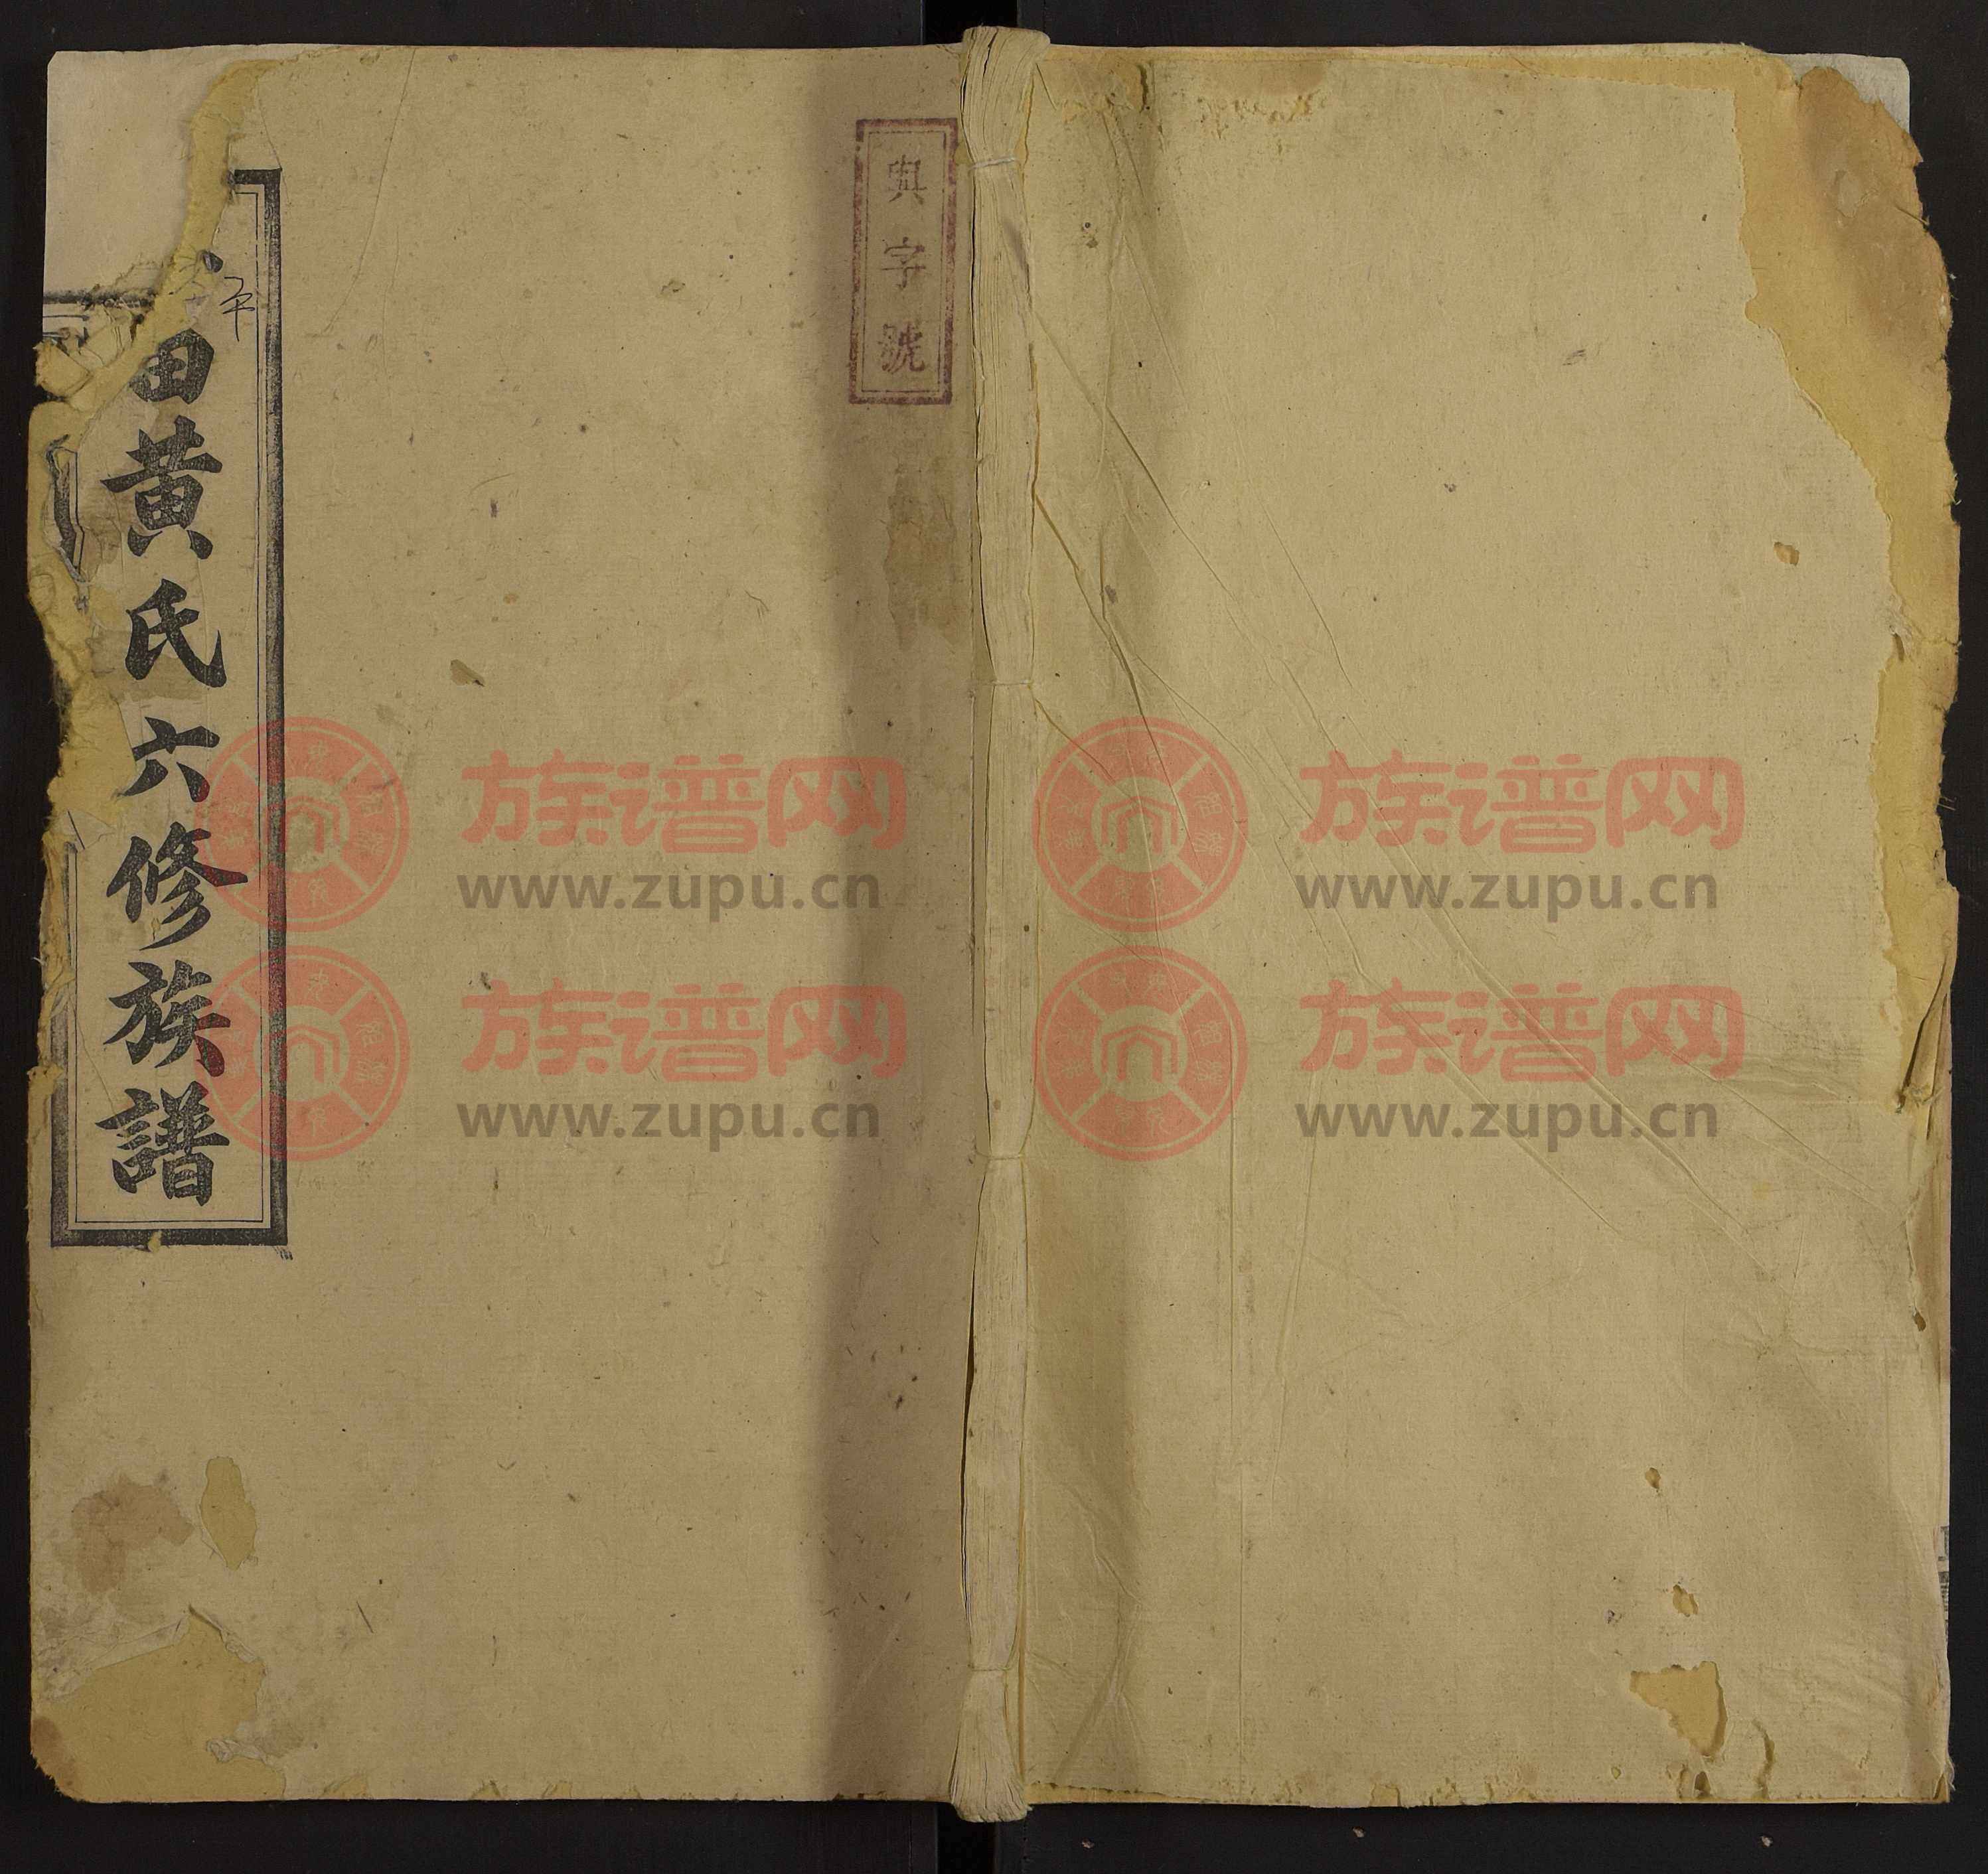 與字號
田黃氏六修族譜
族谱网
www.zupu.cn
族谱网
www.zupu.cn
族谱网
www.zupu.cn
族谱网
www.zupu.cn